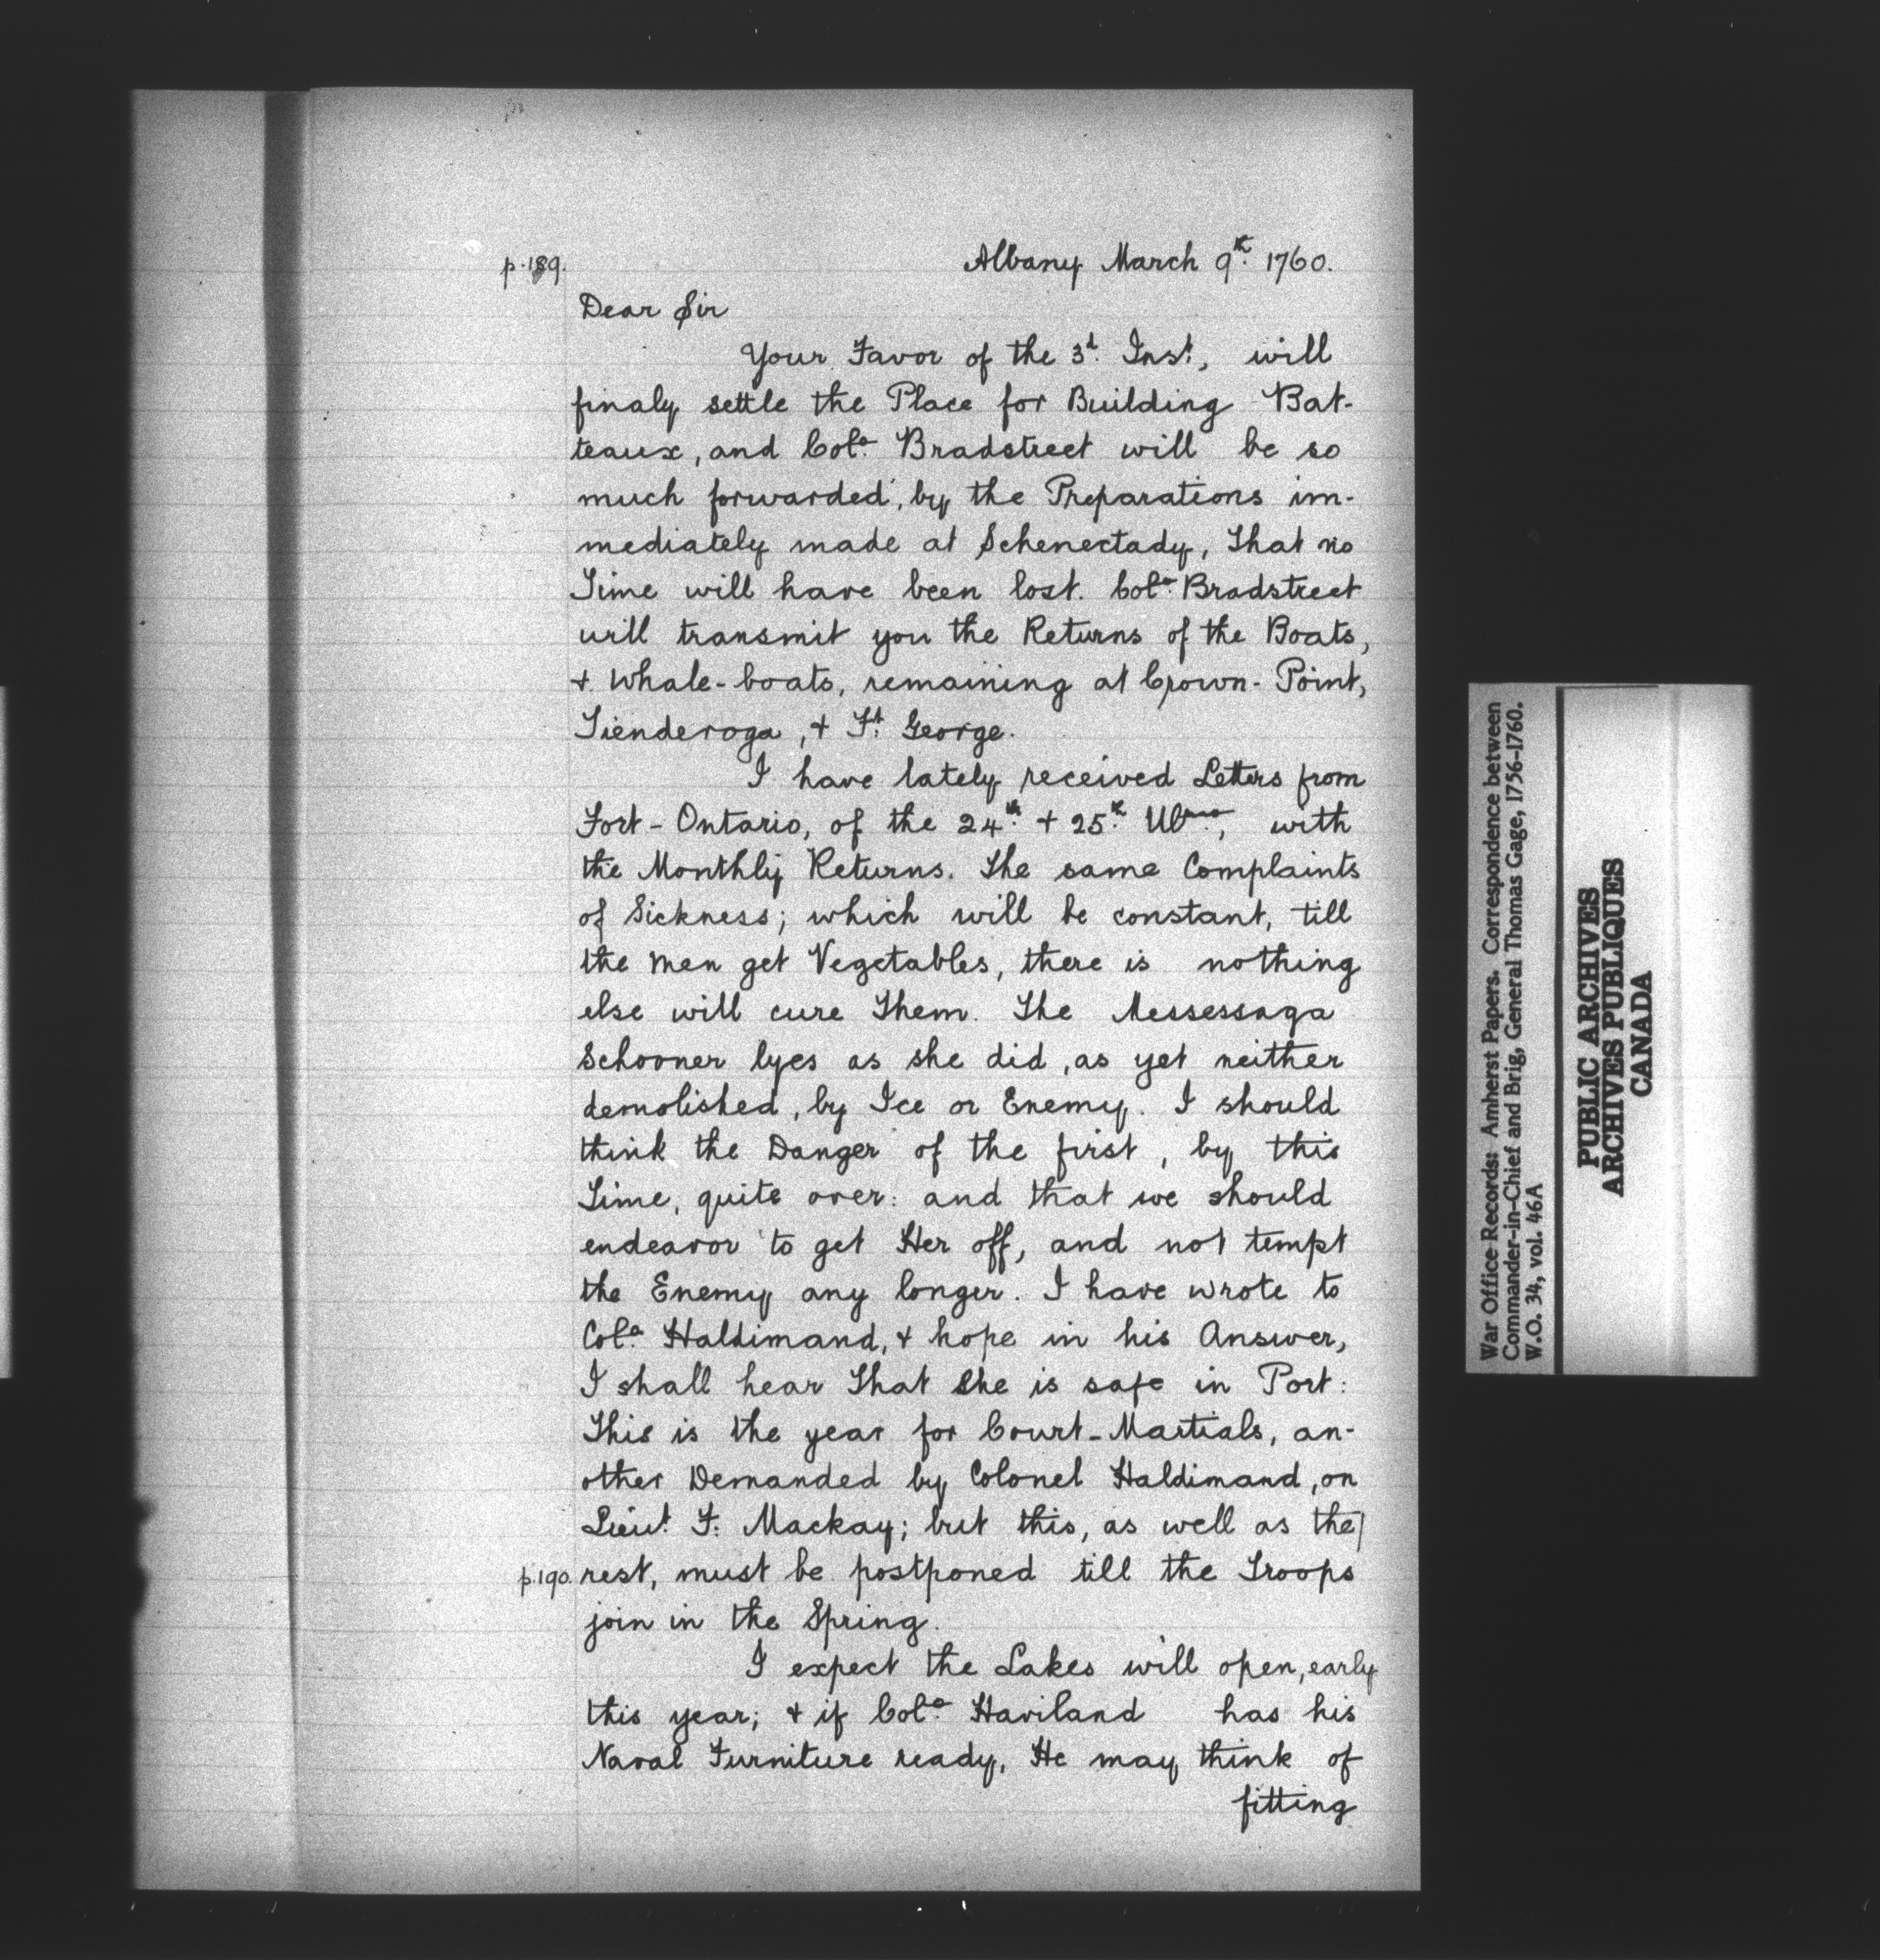 p.189. Albany March 9th. 1760.
Dear Sir
Your Favor of the 3d. Inst., will
finaly settle the Place for Building Bat-
teaux, and Colo. Bradstreet will be so
much forwarded, by the Preparations im-
mediately made at Schenectady, that no
Time will have been lost. Colo. Bradstreet
will transmit you the Returns of the Boats,
+ Whale-boats, remaining at Crown-Point,
Tienderoga, + Ft. George.
I have lately received Letters from
Fort-Ontario, of the 24th. + 25th. Ulmo., with
the Monthly Returns. The same Complaints
of Sickness; which will be constant, till
the men get Vegetables, there is nothing
else will cure Them. The Messessaga
Schooner lyes as she did, as yet neither
demolished, by Ice or Enemy. I should
think the Danger of the first, by this
Time, quite over: and that we should
endeavor to get Her off, and not tempt
the Enemy any longer. I have wrote to
Colo. Haldimand, + hope in his Answer,
I shall hear that she is safe in Port:
This is the year for Court-Martials, an-
other Demanded by Colonel Haldimand, on
Lieut. F: Mackay; but this, as well as the/
p.190. rest, must be postponed till the Troops
join in the Spring.
I expect the Lakes will open, early
this year; + if Colo. Haviland has his
Naval Furniture ready, He may think of
fitting
War Office Records: Amherst Papers. Correspondence between
Commander-in-Chief and Brig, General Thomas Gage, 1756-1760.
W.O. 34, vol. 46A
PUBLIC ARCHIVES
ARCHIVES PUBLIQUES
CANADA